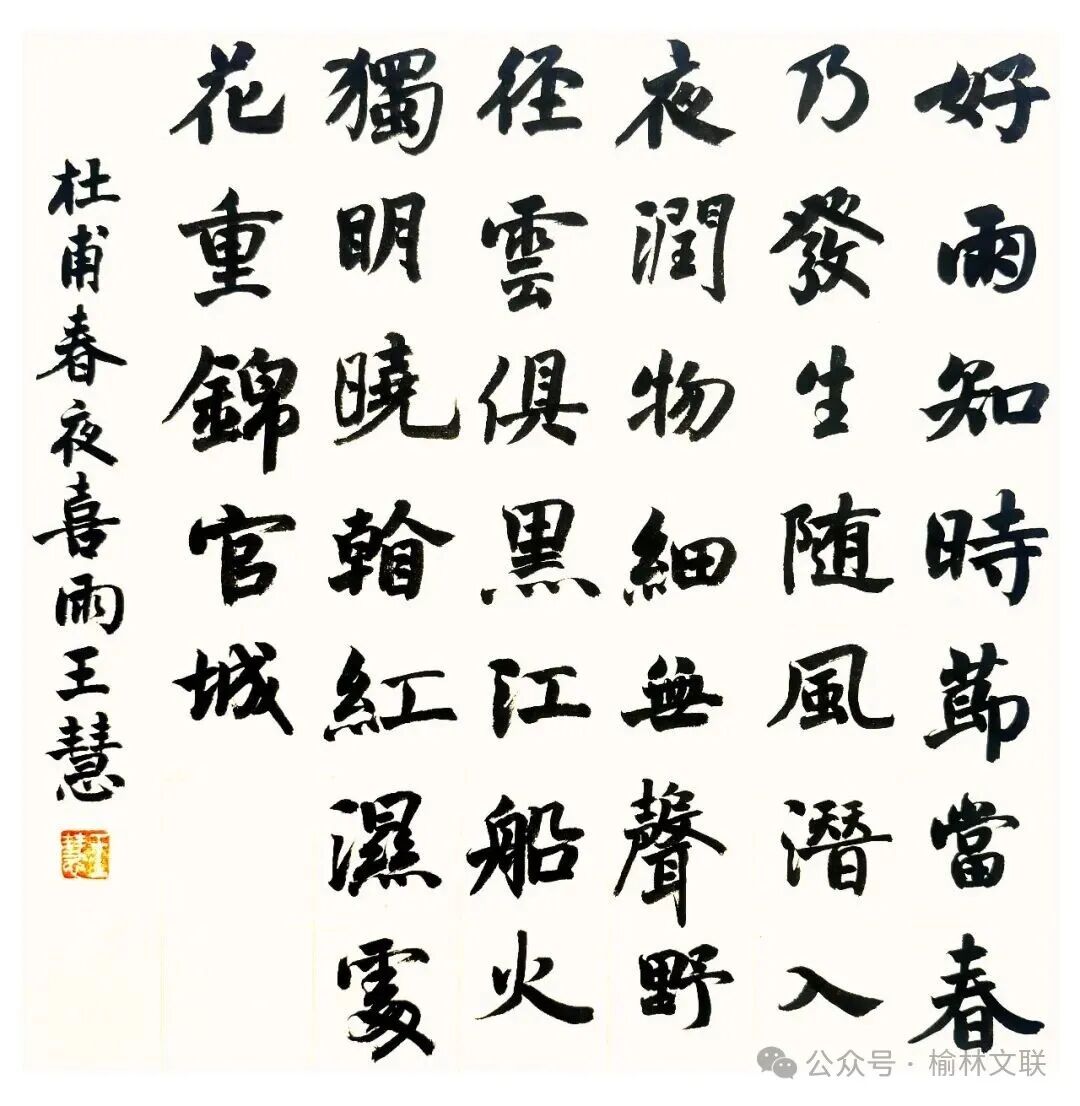 好雨知時節當春
乃發生随風潛入
夜潤物細無聲野
径雲俱黑江船火
獨明曉看紅濕處
花重錦官城
杜甫春夜喜雨王慧
王慧
公众号·榆林文联